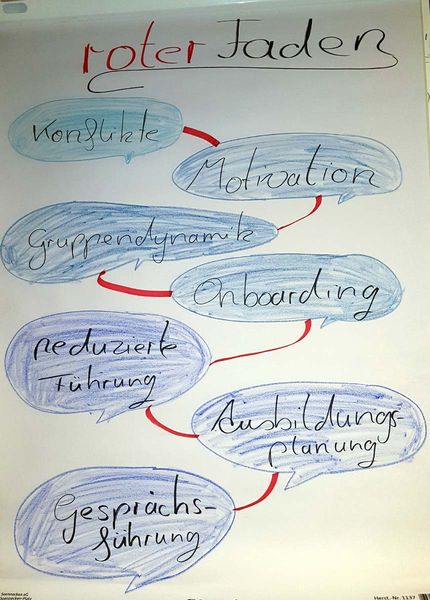 roter Faden
Konflikte
Motivation
Gruppendynamik
Onboarding
reduzierte
Führung
Ausbildungs-
planung
Gesprächs-
führung
Soennecken eG
Soennecken-Platz
Herst.-Nr. 1137